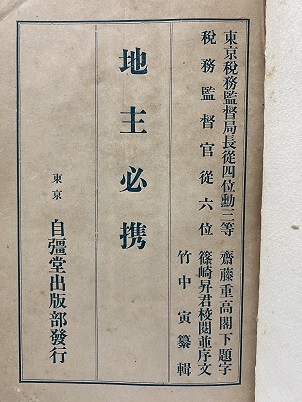 東京税務監督局長從四位勳三等 齋藤重高閣下題字
税務監督官從六位 篠崎昇君校閲並序文
竹中寅纂輯
地主必携
東京 自彊堂出版部發行